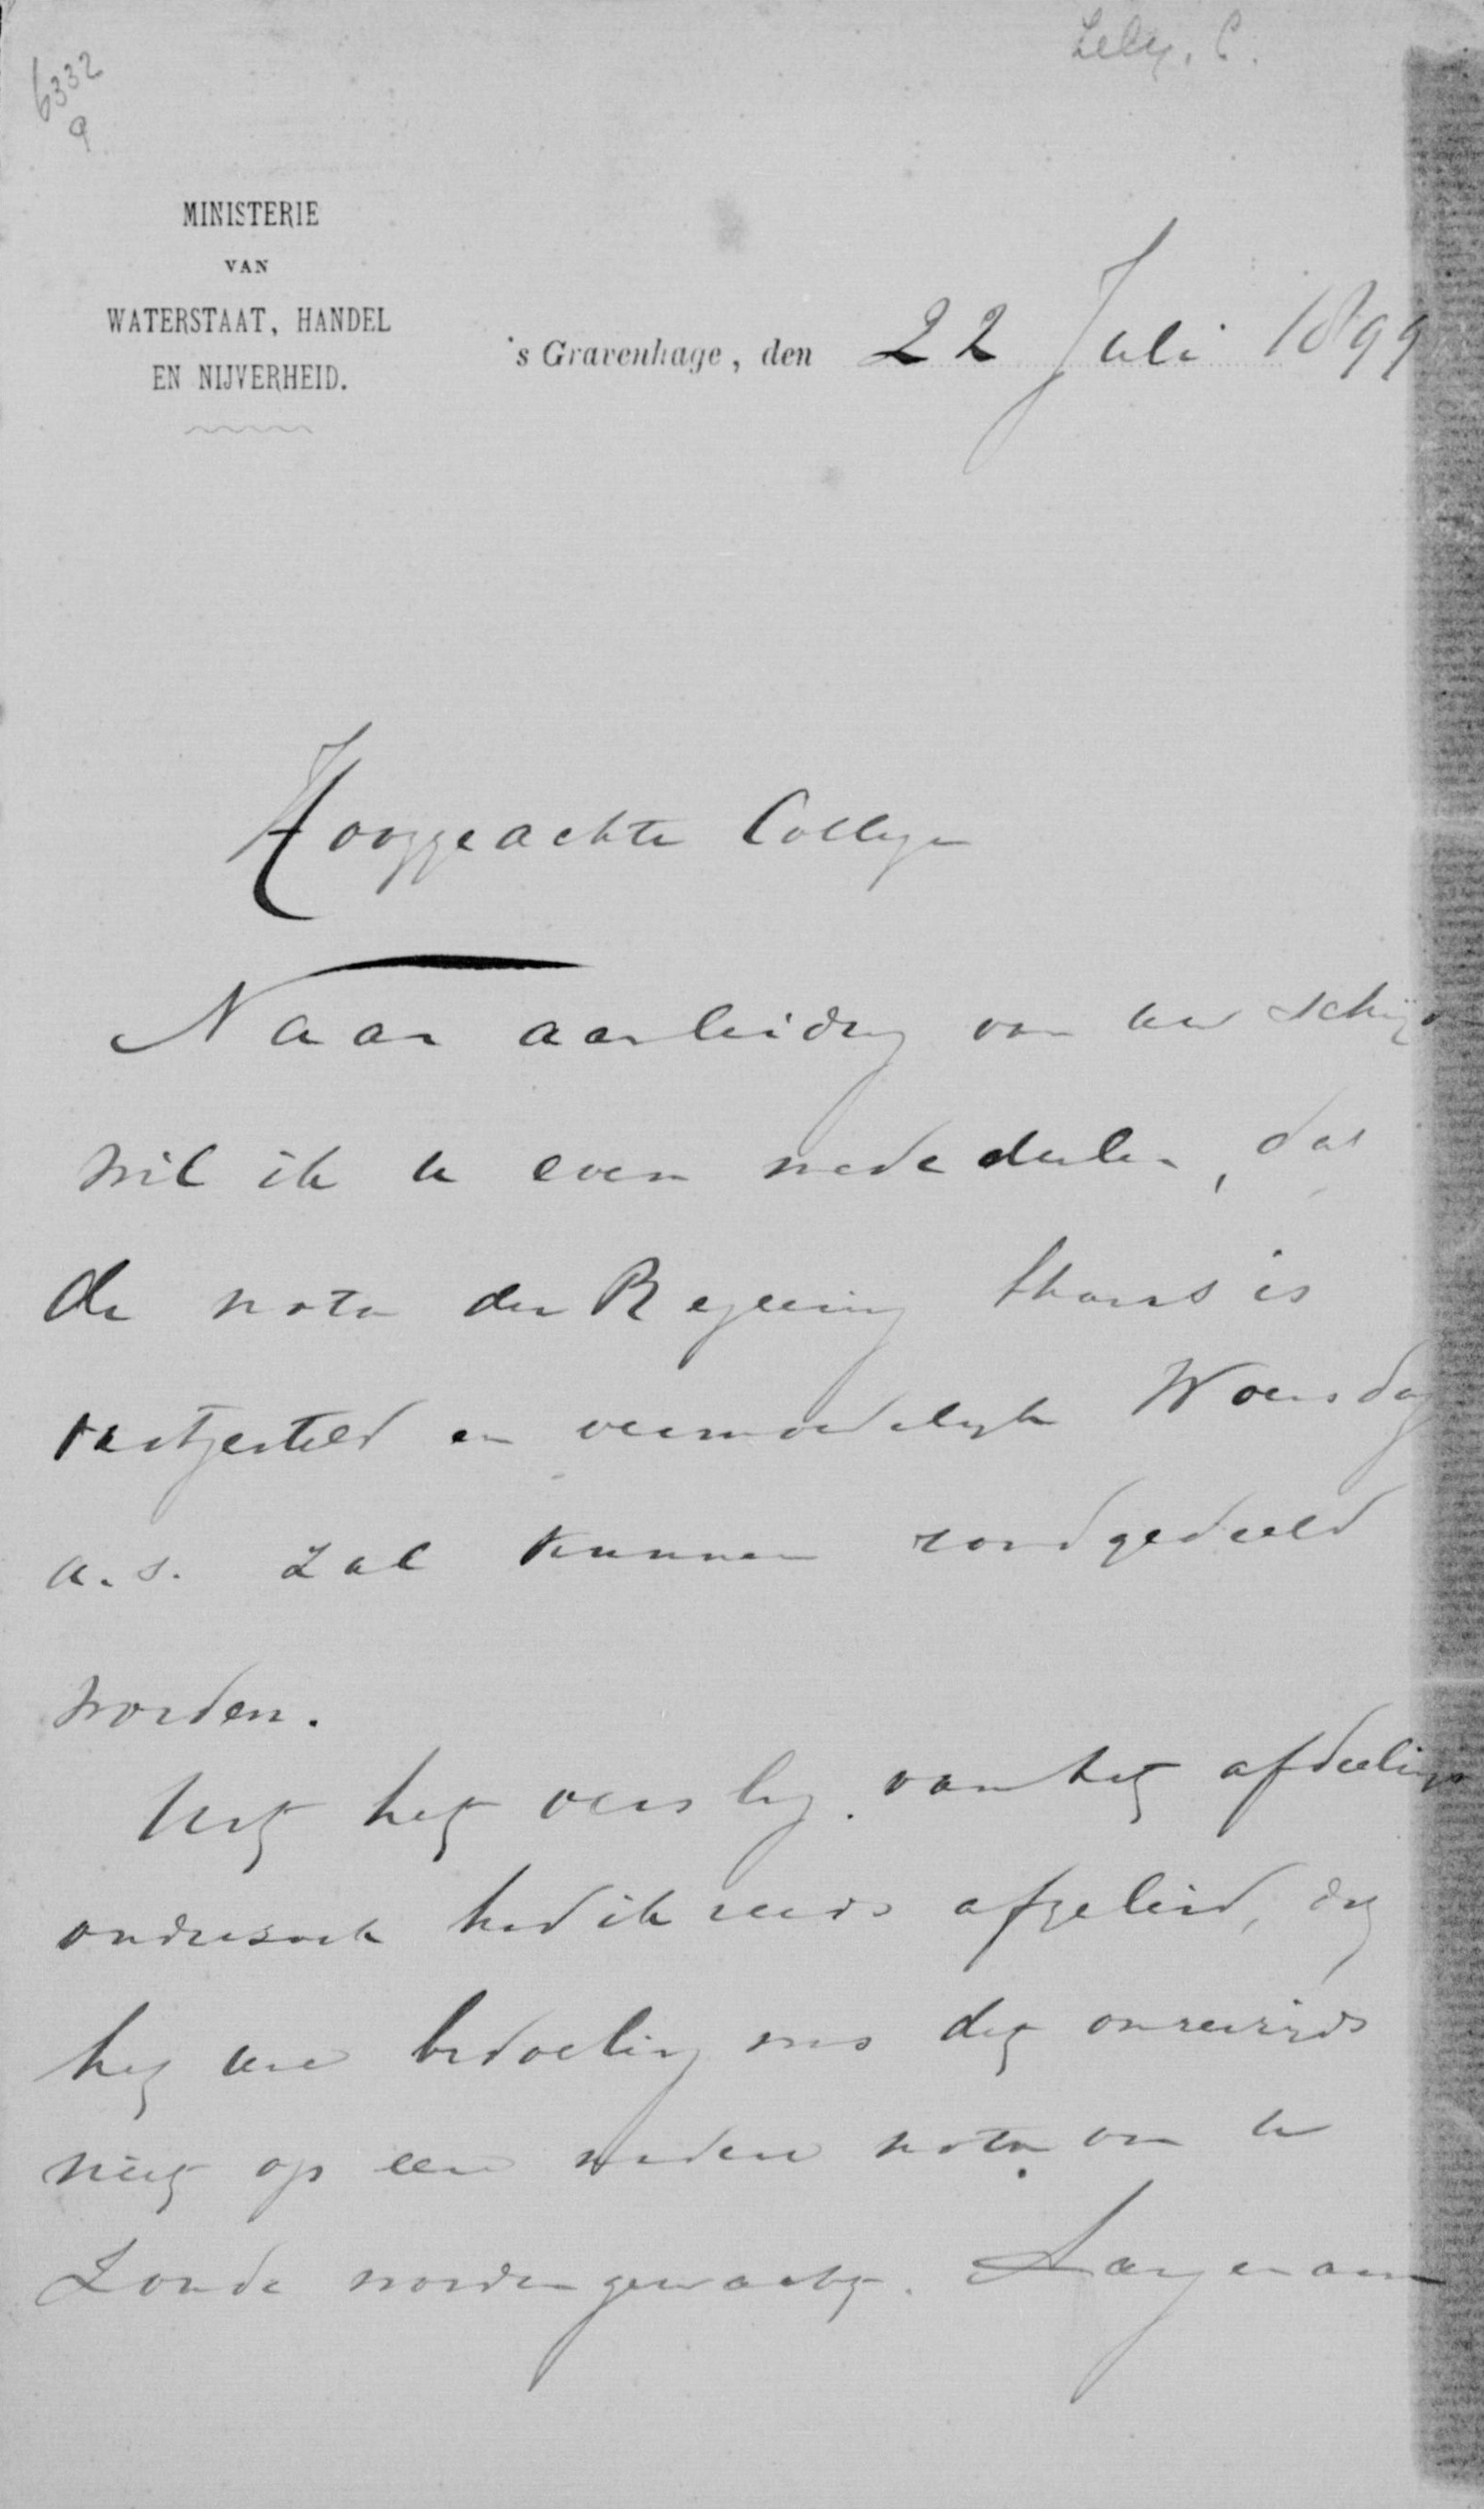 Lely, C.
6332
9
MINISTERIE
VAN
WATERSTAAT, HANDEL
EN NIJVERHEID.
's Gravenhage, den 22 Juli 1899
Hooggeachte Collega
Naar aanleiding van uw
wil ik u even mededeelen, dat
de nota der Regeering thans is
vastgesteld en vermoedelijk Woensdag
a.s. zal kunnen rondgedeeld
worden.
Uit het verslag van het afdeelings
onderzoek had ik reeds afgeleid, dat
het uw bedoeling was dat
niet op een nadere nota van u
zoude worden gewacht. Aangenaam